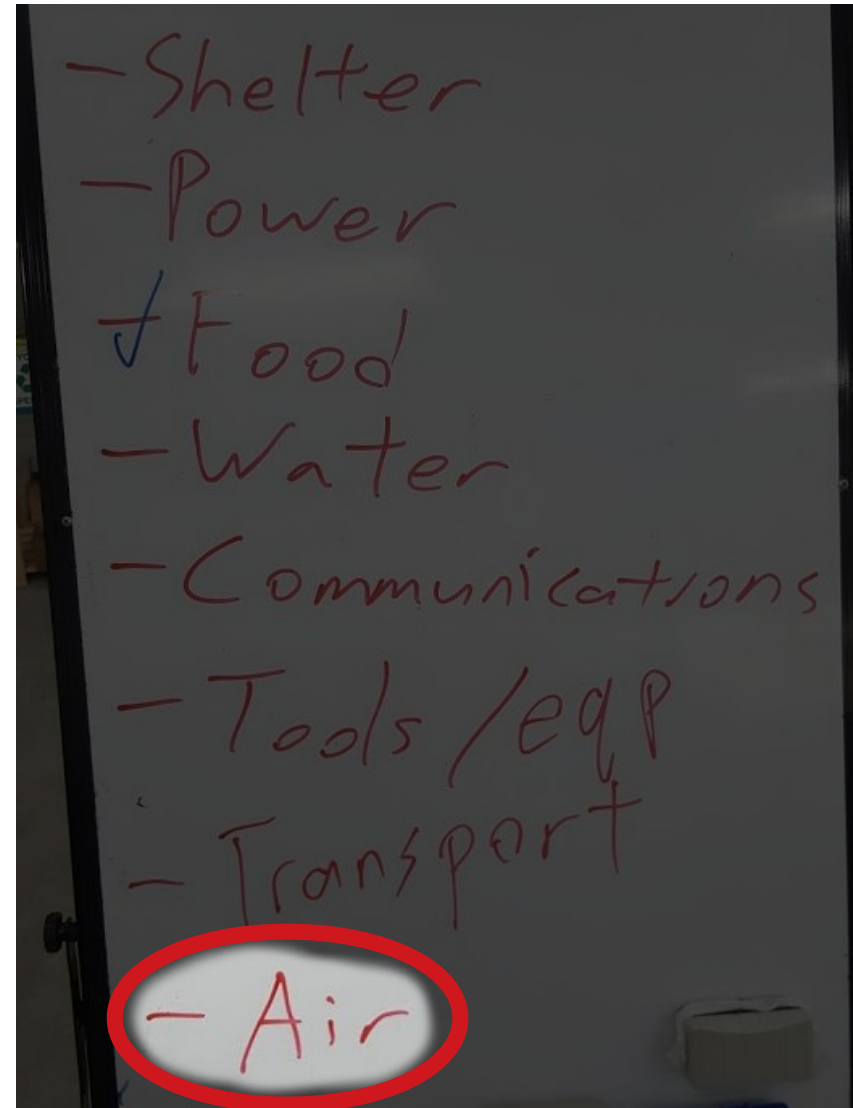 - Shelter
- Power
- Food
- Water
- Communications
- Tools/eqp
- Transport
- Air